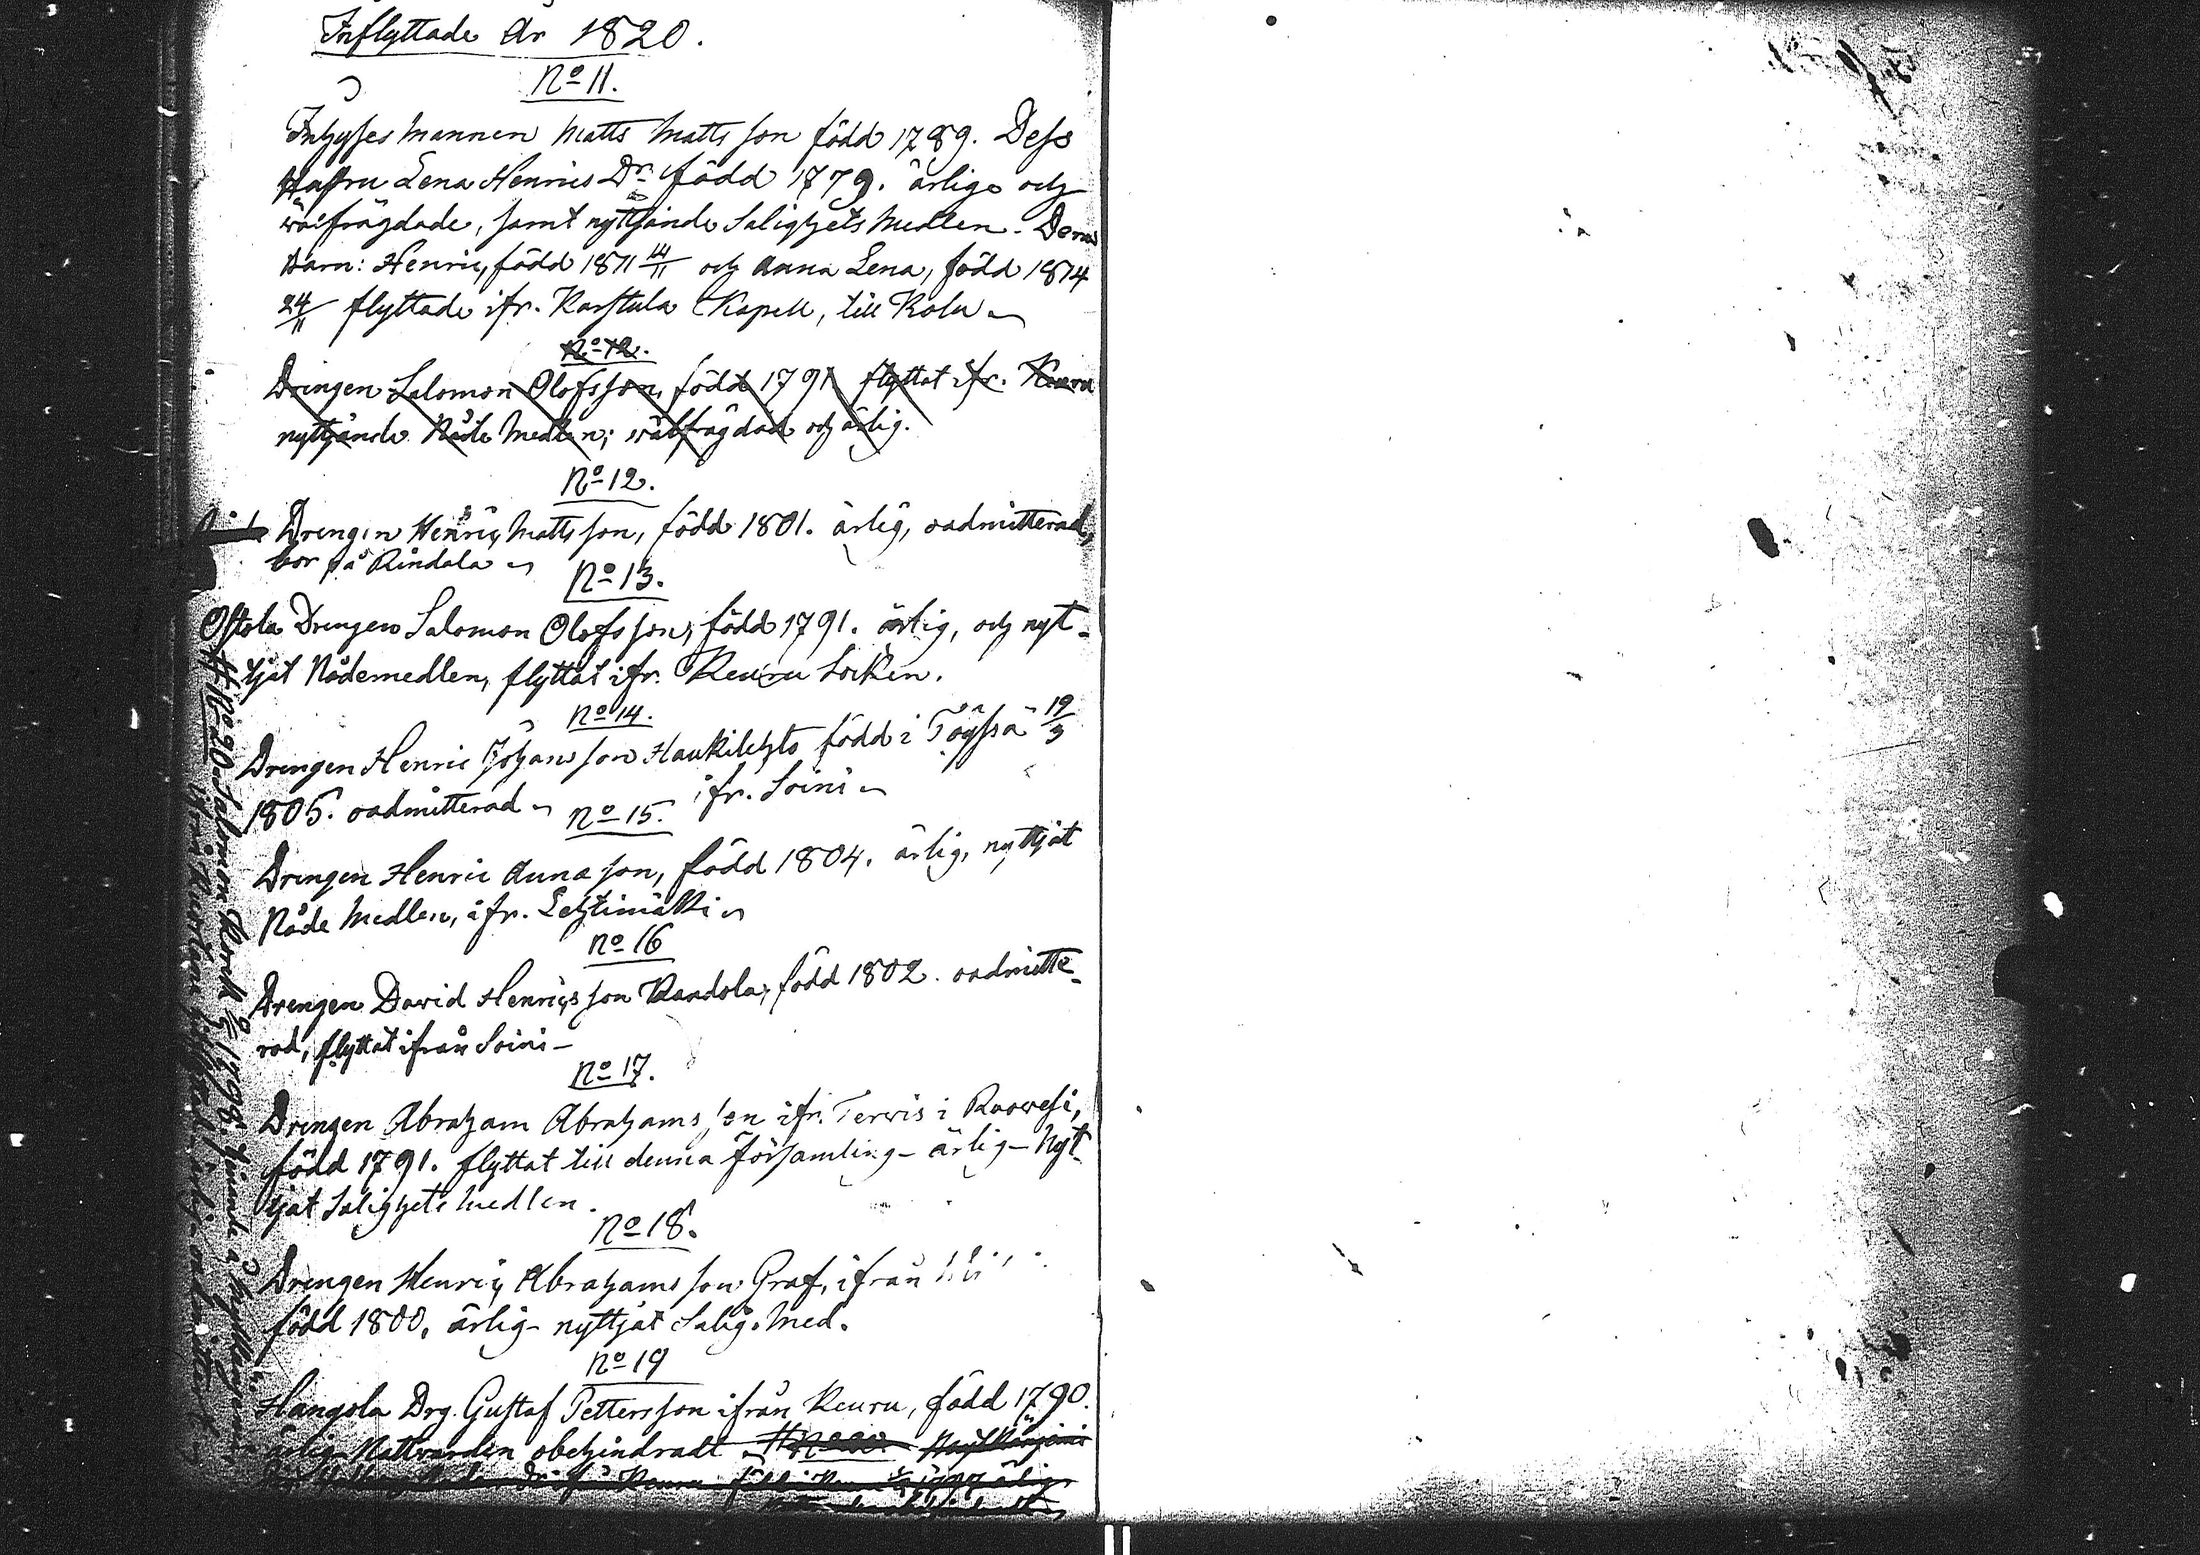 Inflyttade år 1820.
No 11.
Inhyses mannen Matts Matts son född 1789. Dess
Hustru Lena Henrics Dr född 1779. ärliga och
wälfrägdade, samt nyttjande Salighets Medlen. Deras
Barn: Henric, född 1811 14/11 och Anna Lena, född 1814
24/11 flyttade ifr. Karstula Kapell, till Kolu
No 12.
Drengen Salomon Olofsson, född 1791 flyttat ifr. Keuru
nyttjande Nåde Medlen; wälfrägdad och ärlig.
No 12.
Drengen Henric Matts son, född 1801. ärlig, oadmitterad,
bor på Rindala
No 13.
Ostola Drengen Salomon Olofs son, född 1791. ärlig, och nyt-
tjat Nådemedlen, flyttat ifr. Keuru Socken.
No 14.
Drengen Henric Johans son Haukilehto född i Töysä 19/3
1805. oadmitterad ifr. Soini
No 15.
Drengen Henric Aunæ son, född 1804. ärlig, nyttjat
Nåde Medlen, ifr. Lehtimäki
No 16
Drengen David Henrics son Kandola, född 1802. oadmitte-
rad, flyttat ifrån Soini
No 17.
Drengen Abraham Abrahams son ifr. Terwis i Ruowesi,
född 1791. flyttat till denna Församling - ärlig - Nyt-
tjat Salighets Medlen.
No 18.
Drengen Henric Abrahams son Graf, ifrån
född 1800. ärlig - nyttjat Salig. Med.
No 19
Hangola Drg. Gustaf Petters son ifrån Keuru, född 1790.
ärlig Nattvarden obehindradt
# No 20. Salomon 1798